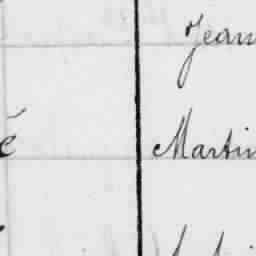 Jean
é Martin